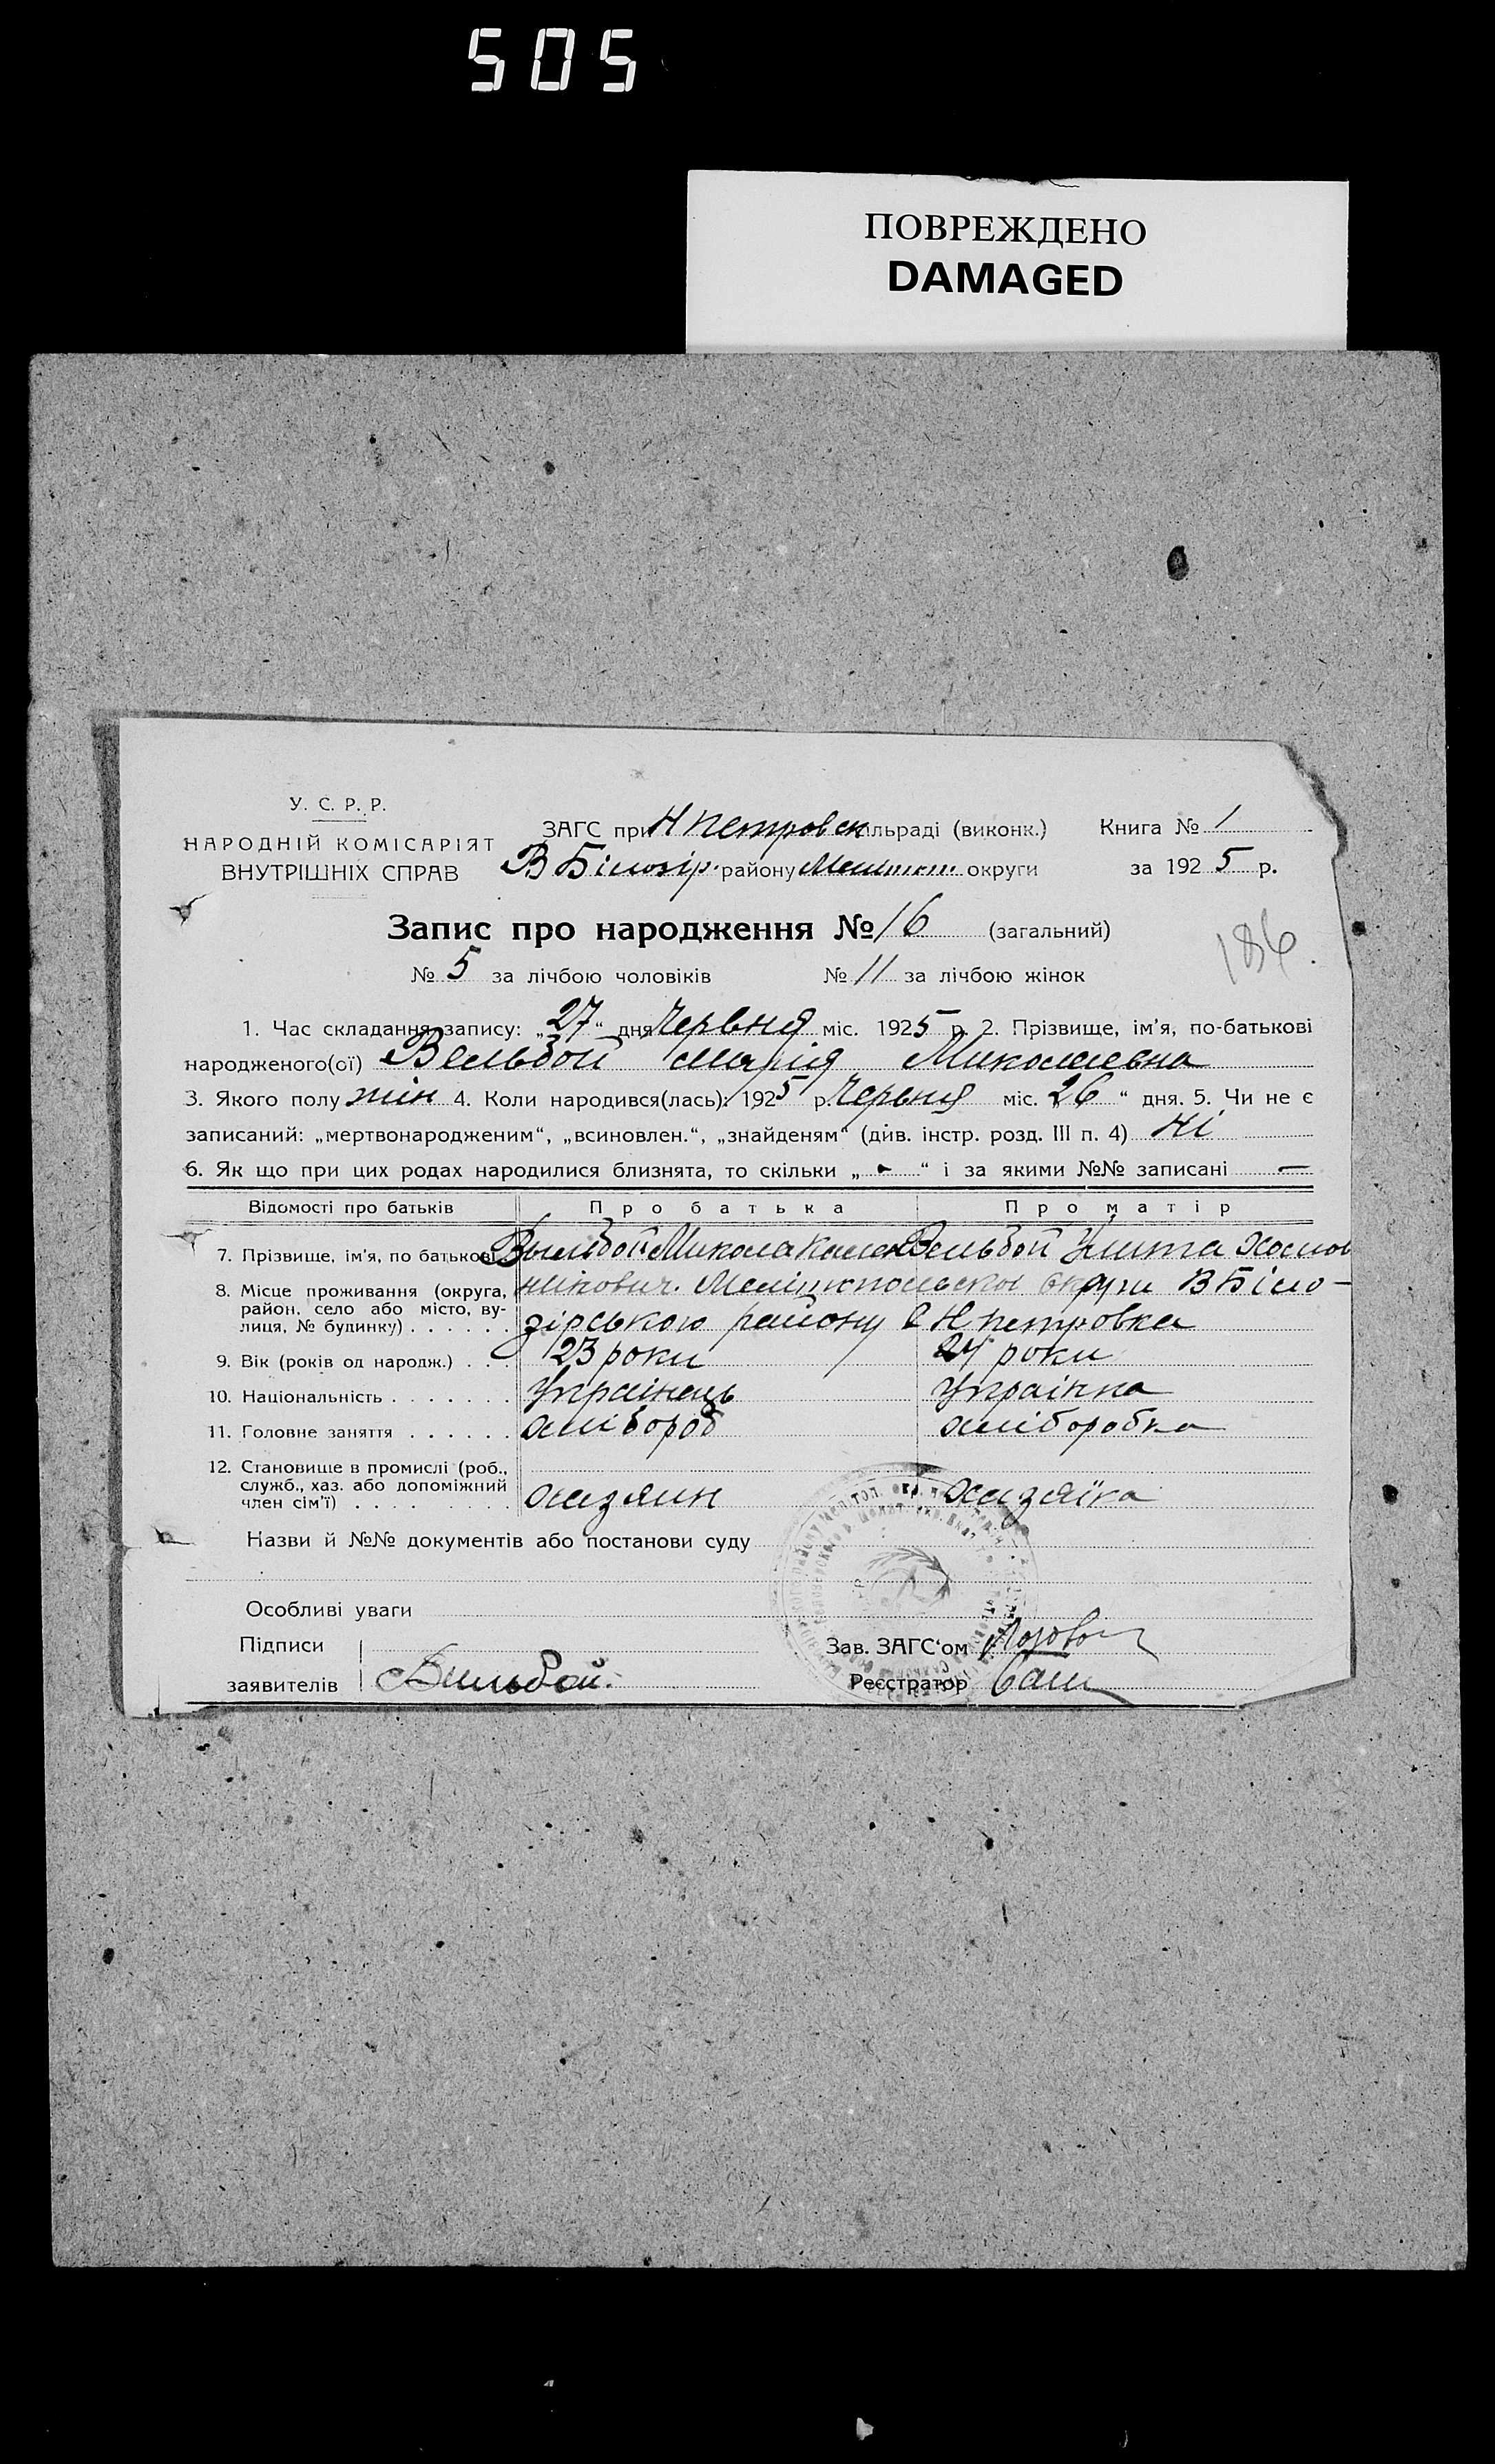 505
ПОВРЕЖДЕНО
DAMAGED
У. С. Р. Р.
НАРОДНІЙ КОМІСАРІЯТ
ВНУТРІШНІХ СПРАВ
ЗАГС при Н Петровск ільраді (виконк.) Книга № 1
В Білозір. району округи за 1925 р.
Запис про народження № 16 (загальний)
186.
№ 5 за лічбою чоловіків № 11 за лічбою жінок
1. Час складання запису: „27“ дня Червня міс. 1925 р. 2. Прізвище, ім'я, по-батькові
народженого(ої) Вельбой Марія Миколаевна
3. Якого полу жін 4. Коли народився(лась): 1925 р. Червня міс. „26“ дня. 5. Чи не є
записаний: „мертвонародженим“, „всиновлен.“, „знайденям“ (див. інстр. розд. III п. 4) Ні
6. Як що при цих родах народилися близнята, то скільки „-“ і за якими №№ записані —
Відомості про батьків Про батька Про матір
7. Прізвище, ім'я, по батькові Микола Вельбой Улита
8. Місце проживання (округа, район, село або місто, вулиця, № будинку) . . . . . . Меліцюпольскої округи В Біло-
зірською району С Н петровка
9. Вік (років од народж.) . . . 23 роки 24 роки
10. Національність . . . . . . . Українець Українка
11. Головне заняття . . . . . . хлібороб хліборобка
12. Становище в промислі (роб., служб., хаз. або допоміжний член сім'ї) . . . . . . . . . хазяин хазяїка
Назви й №№ документів або постанови суду
Особливі уваги
Підписи
заявителів Вильбой.
Зав. ЗАГС'ом
Реєстратор